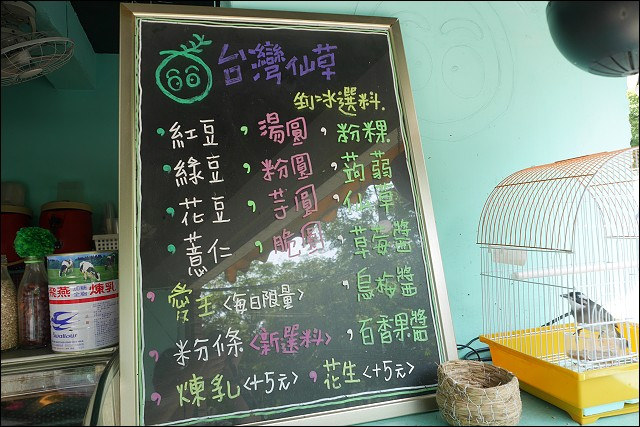 台灣仙草
剉冰選料.
紅豆, 湯圓, 粉粿
綠豆, 粉圓, 蒟蒻
花豆, 芋圓, 仙草
薏仁, 脆圓, 草莓醬
愛玉<每日限量>, 烏梅醬
粉條<新選料>, 百香果醬
煉乳<+5元>, 花生<+5元>
飛燕
煉乳